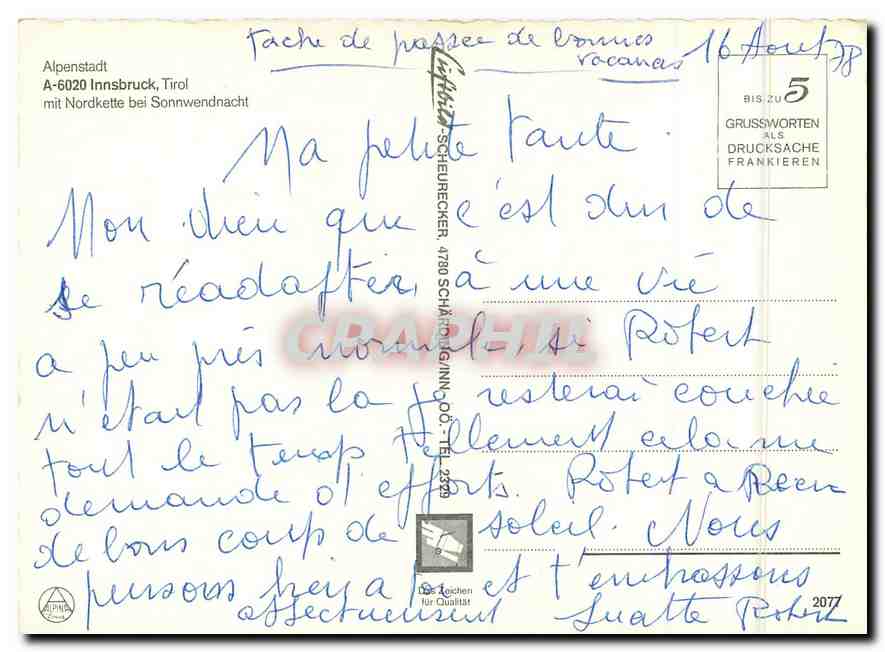 Tache de passer de bonnes
vacances
16 Aout 78
Alpenstadt
A-6020 Innsbruck, Tirol
mit Nordkette bei Sonnwendnacht
BIS ZU 5
GRUSSWORTEN
ALS
DRUCKSACHE
FRANKIEREN
Luftbild-SCHEURECKER, 4780 SCHÄRDING/INN, OÖ. - TEL. 2329
Ma petite tante.
Mon dieu que c'est dur de
se réadapter, à une vie
a peu près normale, si Robert
n'était pas la je resterai couchée
tout le temps tellement cela me
demande d'efforts. Robert a
de bons coup de soleil. Nous
pensons bien a toi et t'embrassons
affectueusement Robert
CPAPHIL
Das Zeichen
für Qualität
ALPINA
2077